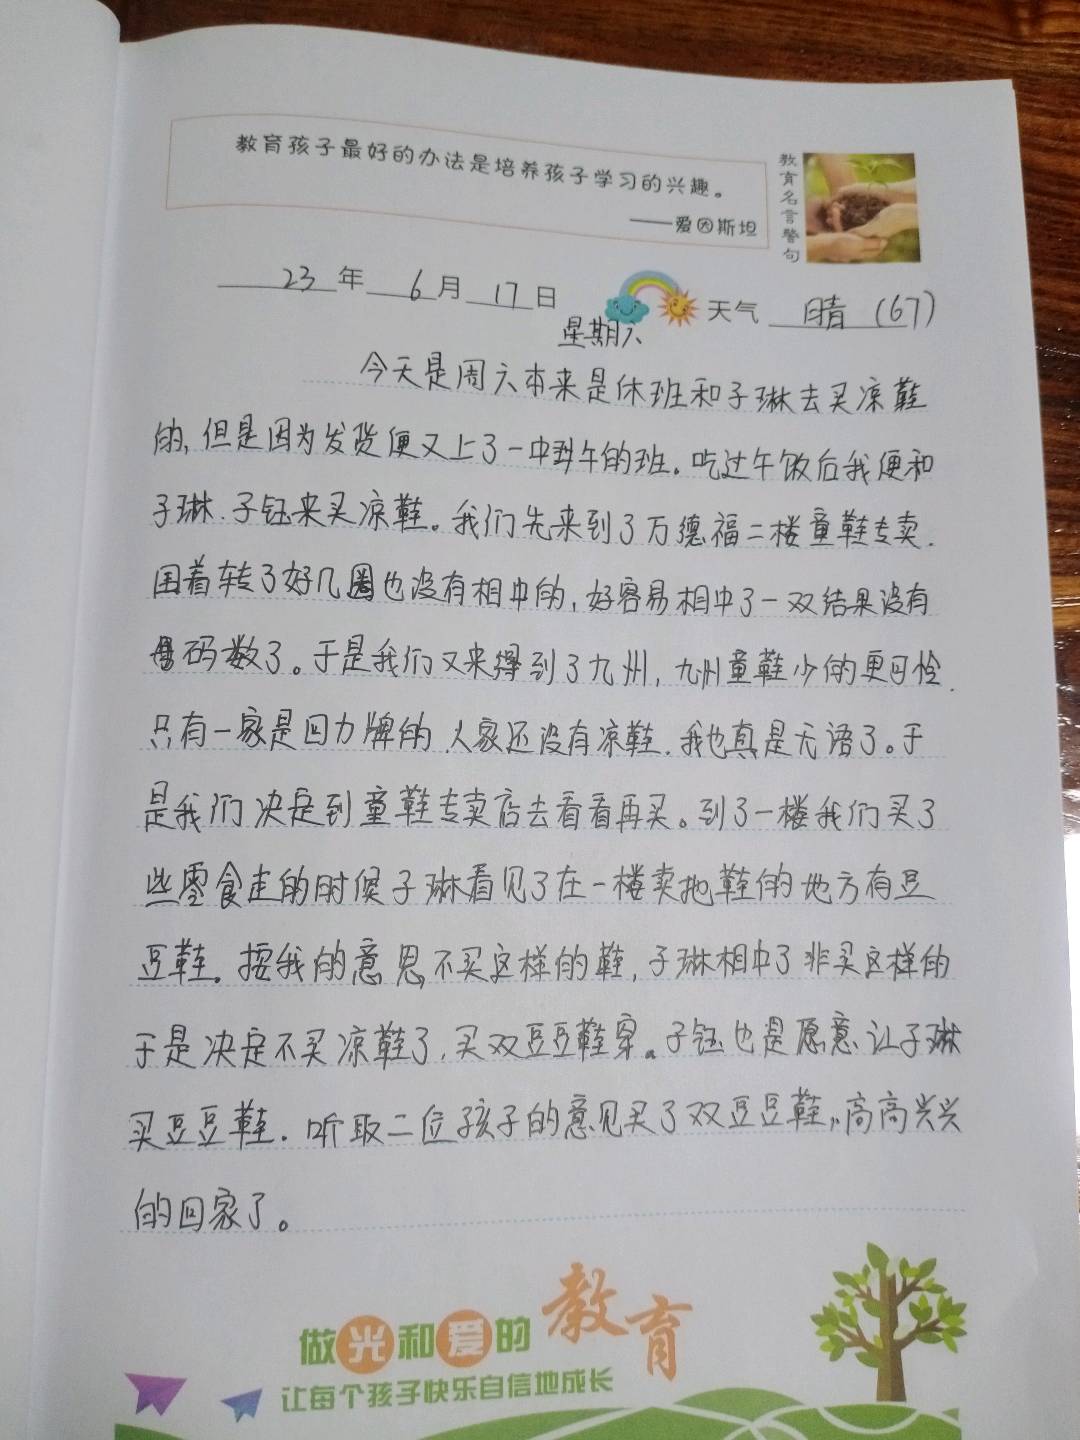 教育孩子最好的办法是培养孩子学习的兴趣。
——爱因斯坦
教育名言警句
23年 6月 17日 天气 晴 (67)
星期六
今天是周六本来是休班和子琳去买凉鞋
的,但是因为发货便又上了一中午的班。吃过午饭后我便和
子琳.子钰来买凉鞋。我们先来到了万德福二楼童鞋专卖.
围着转了好几圈也没有相中的,好容易相中了一双结果没有
号码数了。于是我们又来到了九州,九州童鞋少的更可怜.
只有一家是回力牌的.人家还没有凉鞋.我也真是无语了。于
是我们决定到童鞋专卖店去看看再买。到了一楼我们买了
些零食走的时候子琳看见了在一楼卖拖鞋的地方有豆
豆鞋。按我的意思不买这样的鞋,子琳相中了非买这样的
于是决定不买凉鞋了,买双豆豆鞋穿。子钰也是愿意让子琳
买豆豆鞋.听取二位孩子的意见买了双豆豆鞋,高高兴兴
的回家了。
做光和爱的教育
让每个孩子快乐自信地成长